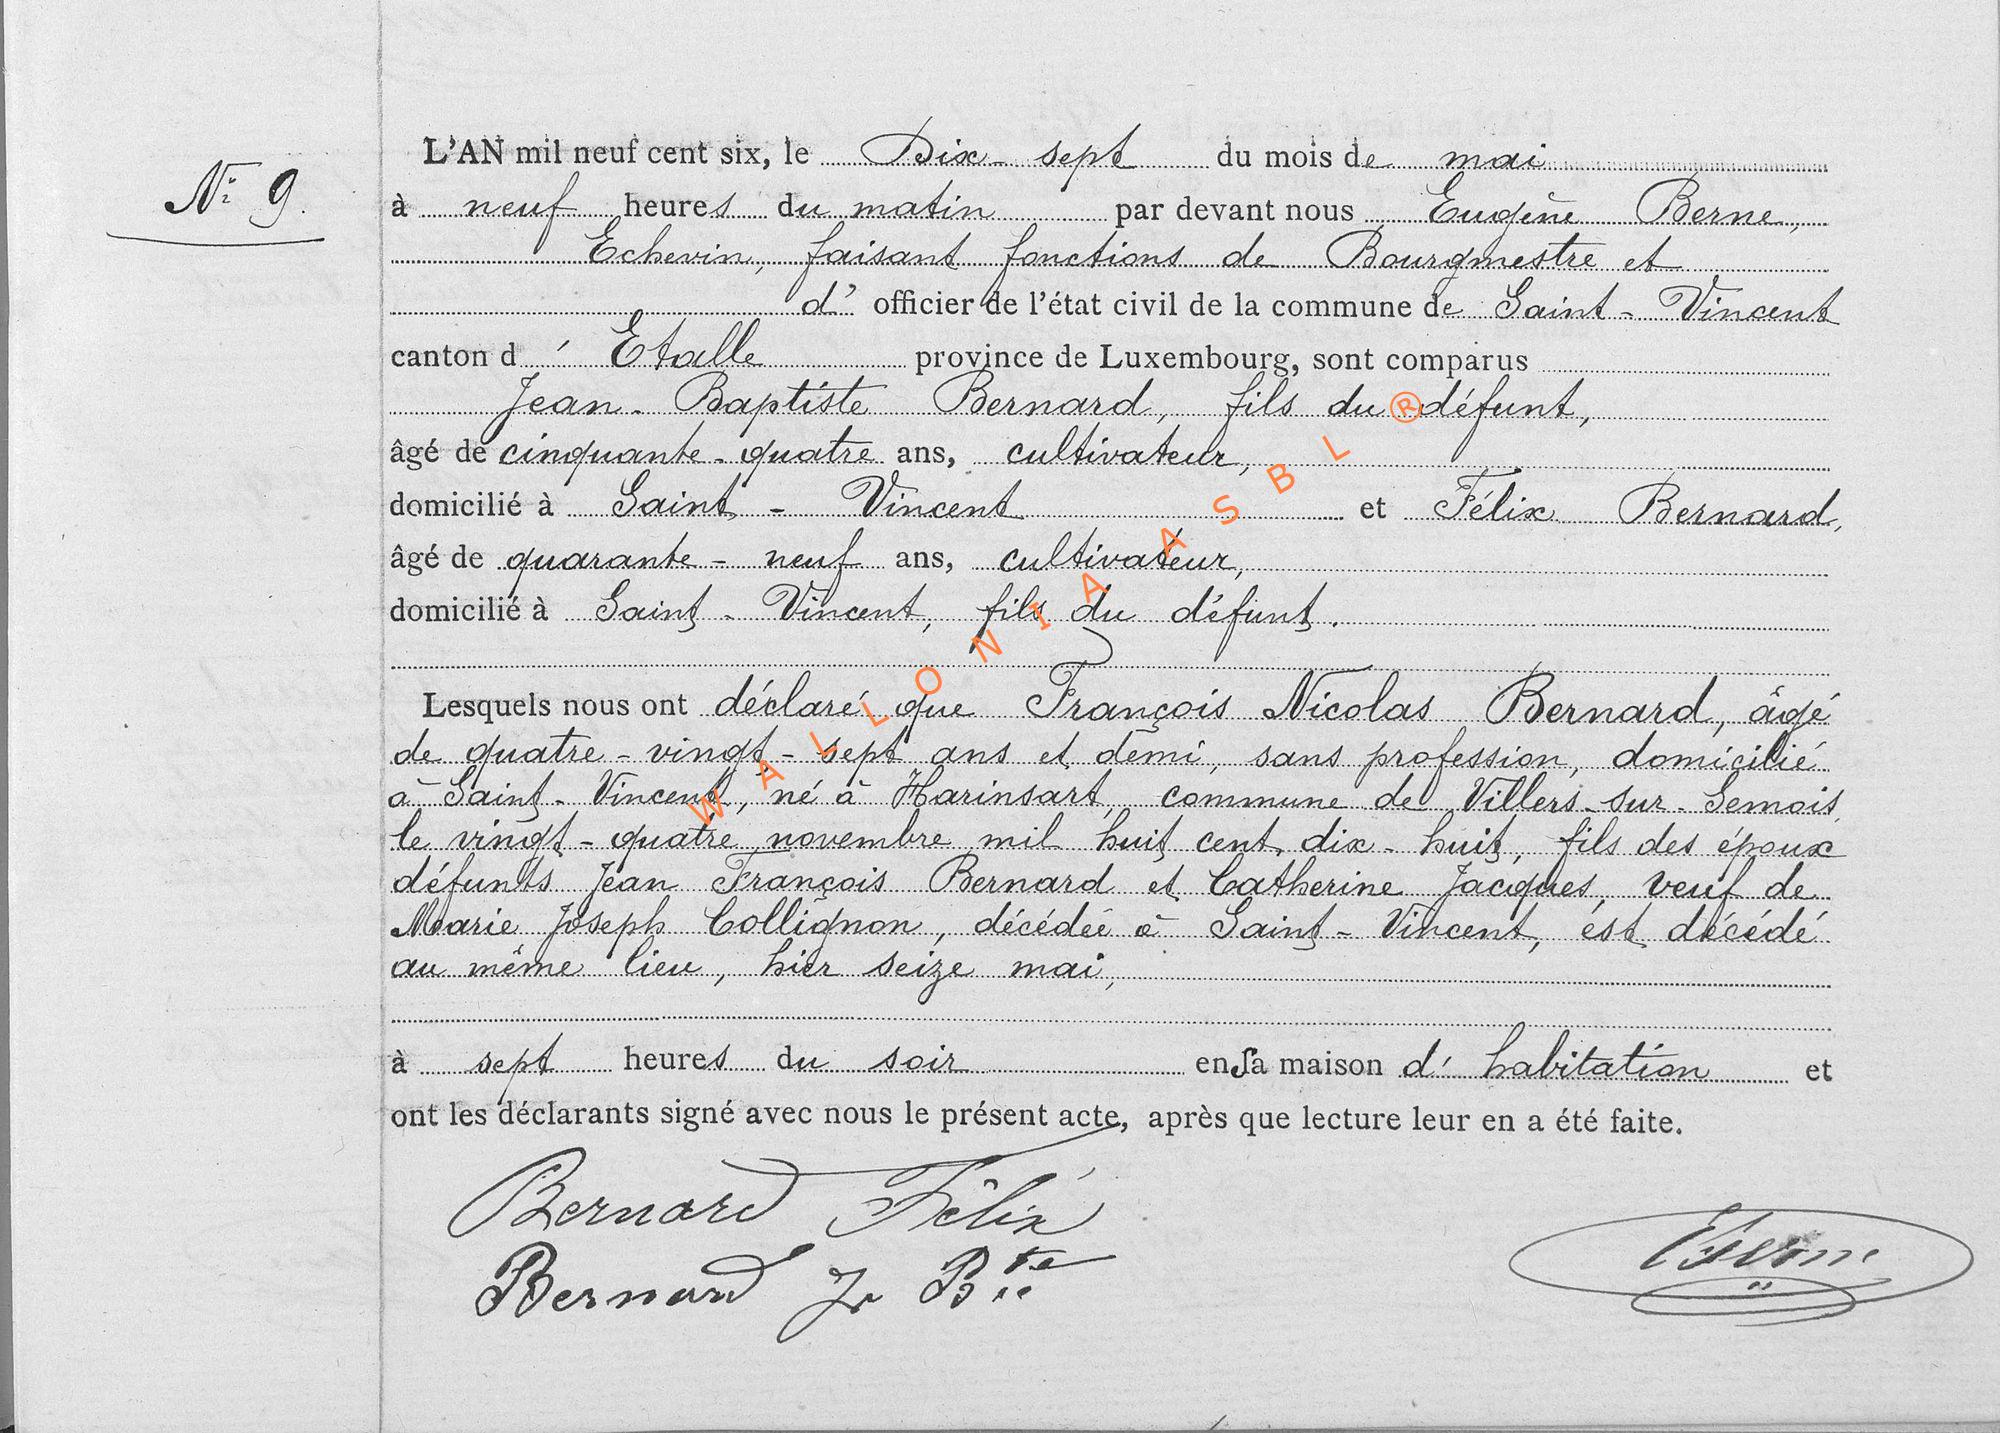 N° 9.
L'AN mil neuf cent six, le Dix-sept du mois de mai
à neuf heures du matin par devant nous Eugène Berne,
Echevin, faisant fonctions de Bourgmestre et
d' officier de l'état civil de la commune de Saint-Vincent
canton d'Etalle province de Luxembourg, sont comparus
Jean-Baptiste Bernard, fils du défunt,
âgé de cinquante-quatre ans, cultivateur,
domicilié à Saint-Vincent et Félix Bernard,
âgé de quarante-neuf ans, cultivateur,
domicilié à Saint-Vincent, fils du défunt.
Lesquels nous ont déclaré que François Nicolas Bernard, âgé
de quatre-vingt-sept ans et demi, sans profession, domicilié
à Saint-Vincent, né à Harinsart, commune de Villers-sur-Semois,
le vingt-quatre novembre mil huit cent dix-huit, fils des époux
défunts Jean François Bernard et Catherine Jacques, veuf de
Marie Joseph Collignon, décédée à Saint-Vincent, est décédé
au même lieu, hier seize mai,
à sept heures du soir en sa maison d'habitation et
ont les déclarants signé avec nous le présent acte, après que lecture leur en a été faite.
Bernard Félix
Bernard J. Bte
EBerne
WALLONIA ASBL ®